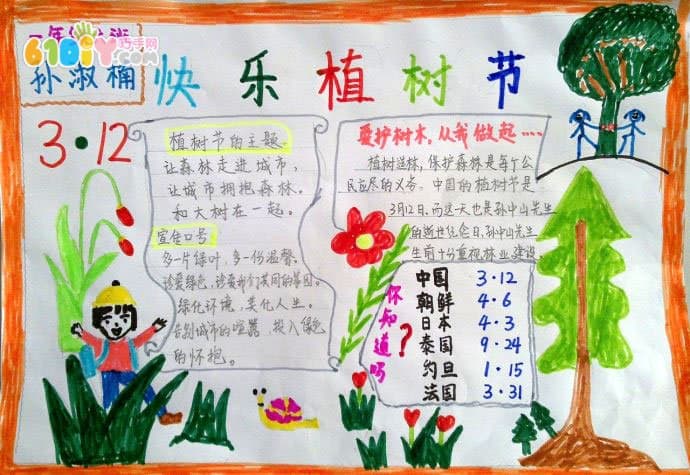 610DIY巧手网
孙淑楠
快乐植树节
3·12
植树节的主题
让森林走进城市，
让城市拥抱森林。
和大树在一起。
宣传口号
多一片绿叶，多一份温馨。
珍爱绿色，珍爱我们共同的家园。
绿化环境，美化人生。
告别城市的喧嚣，投入绿色
的怀抱。
爱护树木，从我做起····
植树造林，保护森林是每个公
民应尽的义务。中国的植树节是
3月12日，而这一天也是孙中山先生
的逝世纪念日，孙中山先生
生前十分重视林业建设。
你知道吗？
中国 3·12
朝鲜 4·6
日本 4·3
泰国 9·24
约旦 1·15
法国 3·31